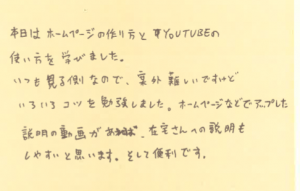 本日は ホームページの作り方と YOUTUBEの
使い方を 学びました。
いつも見る側なので、案外 難しいですけど
いろいろ コツを 勉強しました。ホームページなどでアップした
説明の動画が 、在宅さんへの説明も
しやすいと思います。そして便利です。